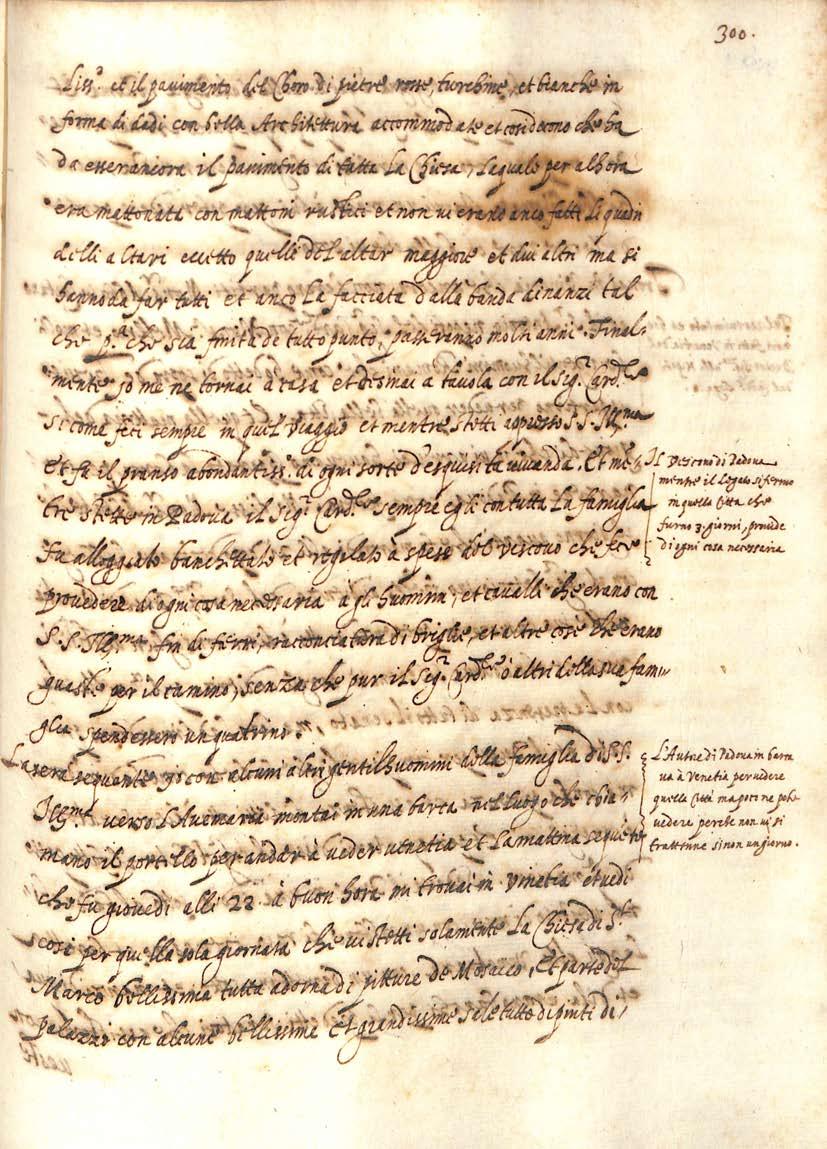 300.
liss.º et il pavimento del Choro di pietre rosse, turchine, et bianche in
forma di dadi con bella Architettura accommodate et cosi dicono che ha
da esser ancora il pavimento di tutta la Chiesa, laquale per alhora
era mattonata con mattoni rustici et non vi erano anco fatti li quadri
delli altari eccetto quelli del altar maggiore et dui altri ma si
hanno da far tutti et anco la facciata dalla banda dinanzi tal
che p.ª che sia finita de tutto punto, passeranno molti anni. Final-
mente io me ne tornai à casa et desinai a tavola con il Sig.r Card.le
si come feci sempre in quel viaggio et mentre stetti appresso S.S. Ill.ma
et fu il pranso abondantiss.º di ogni sorte d'esquisita vivanda. Et men-
tre stette in Padova il Sig.r Card.le sempre egli con tutta la famiglia
fu alloggiato banchettato et regalato à spese del vescovo che fece
provedere di ogni cosa necessaria à gli huomini, et cavalli che erano con
S.S. Ill.ma fin di ferri, racconciatura di briglie, et altre cose che erano
guaste per il camino, senza che pur il Sig.r Card.le ò altri della sua fami-
glia spendessero un quatrino.
La sera sequente io con alcuni altri gentilhuomini della famiglia di S.S.
Ill.ma verso l'Avemaria montai in una barca nel luogo che chia-
mano il portello per andar à veder venetia et la mattina sequente
che fu giovedi alli 22 à buon hora mi trovai in vinetia et vedi
cosi per quella sola giornata che vi stetti solamente la Chiesa di S.t
Marco bellissima tutta adorna di pitture de Mosaico, et parte del
palazzo con alcune bellissime et grandissime sale tutte dipinte di-
Il Vescovo di Padova
mentre il Legato si fermò
in quella Città che
furno 3. giorni, provide
di ogni cosa necessaria
L'Autore di Padova in barca
va à Venetia per vedere
quella Città ma poco ne potè
vedere perche non vi si
trattenne si non un giorno.